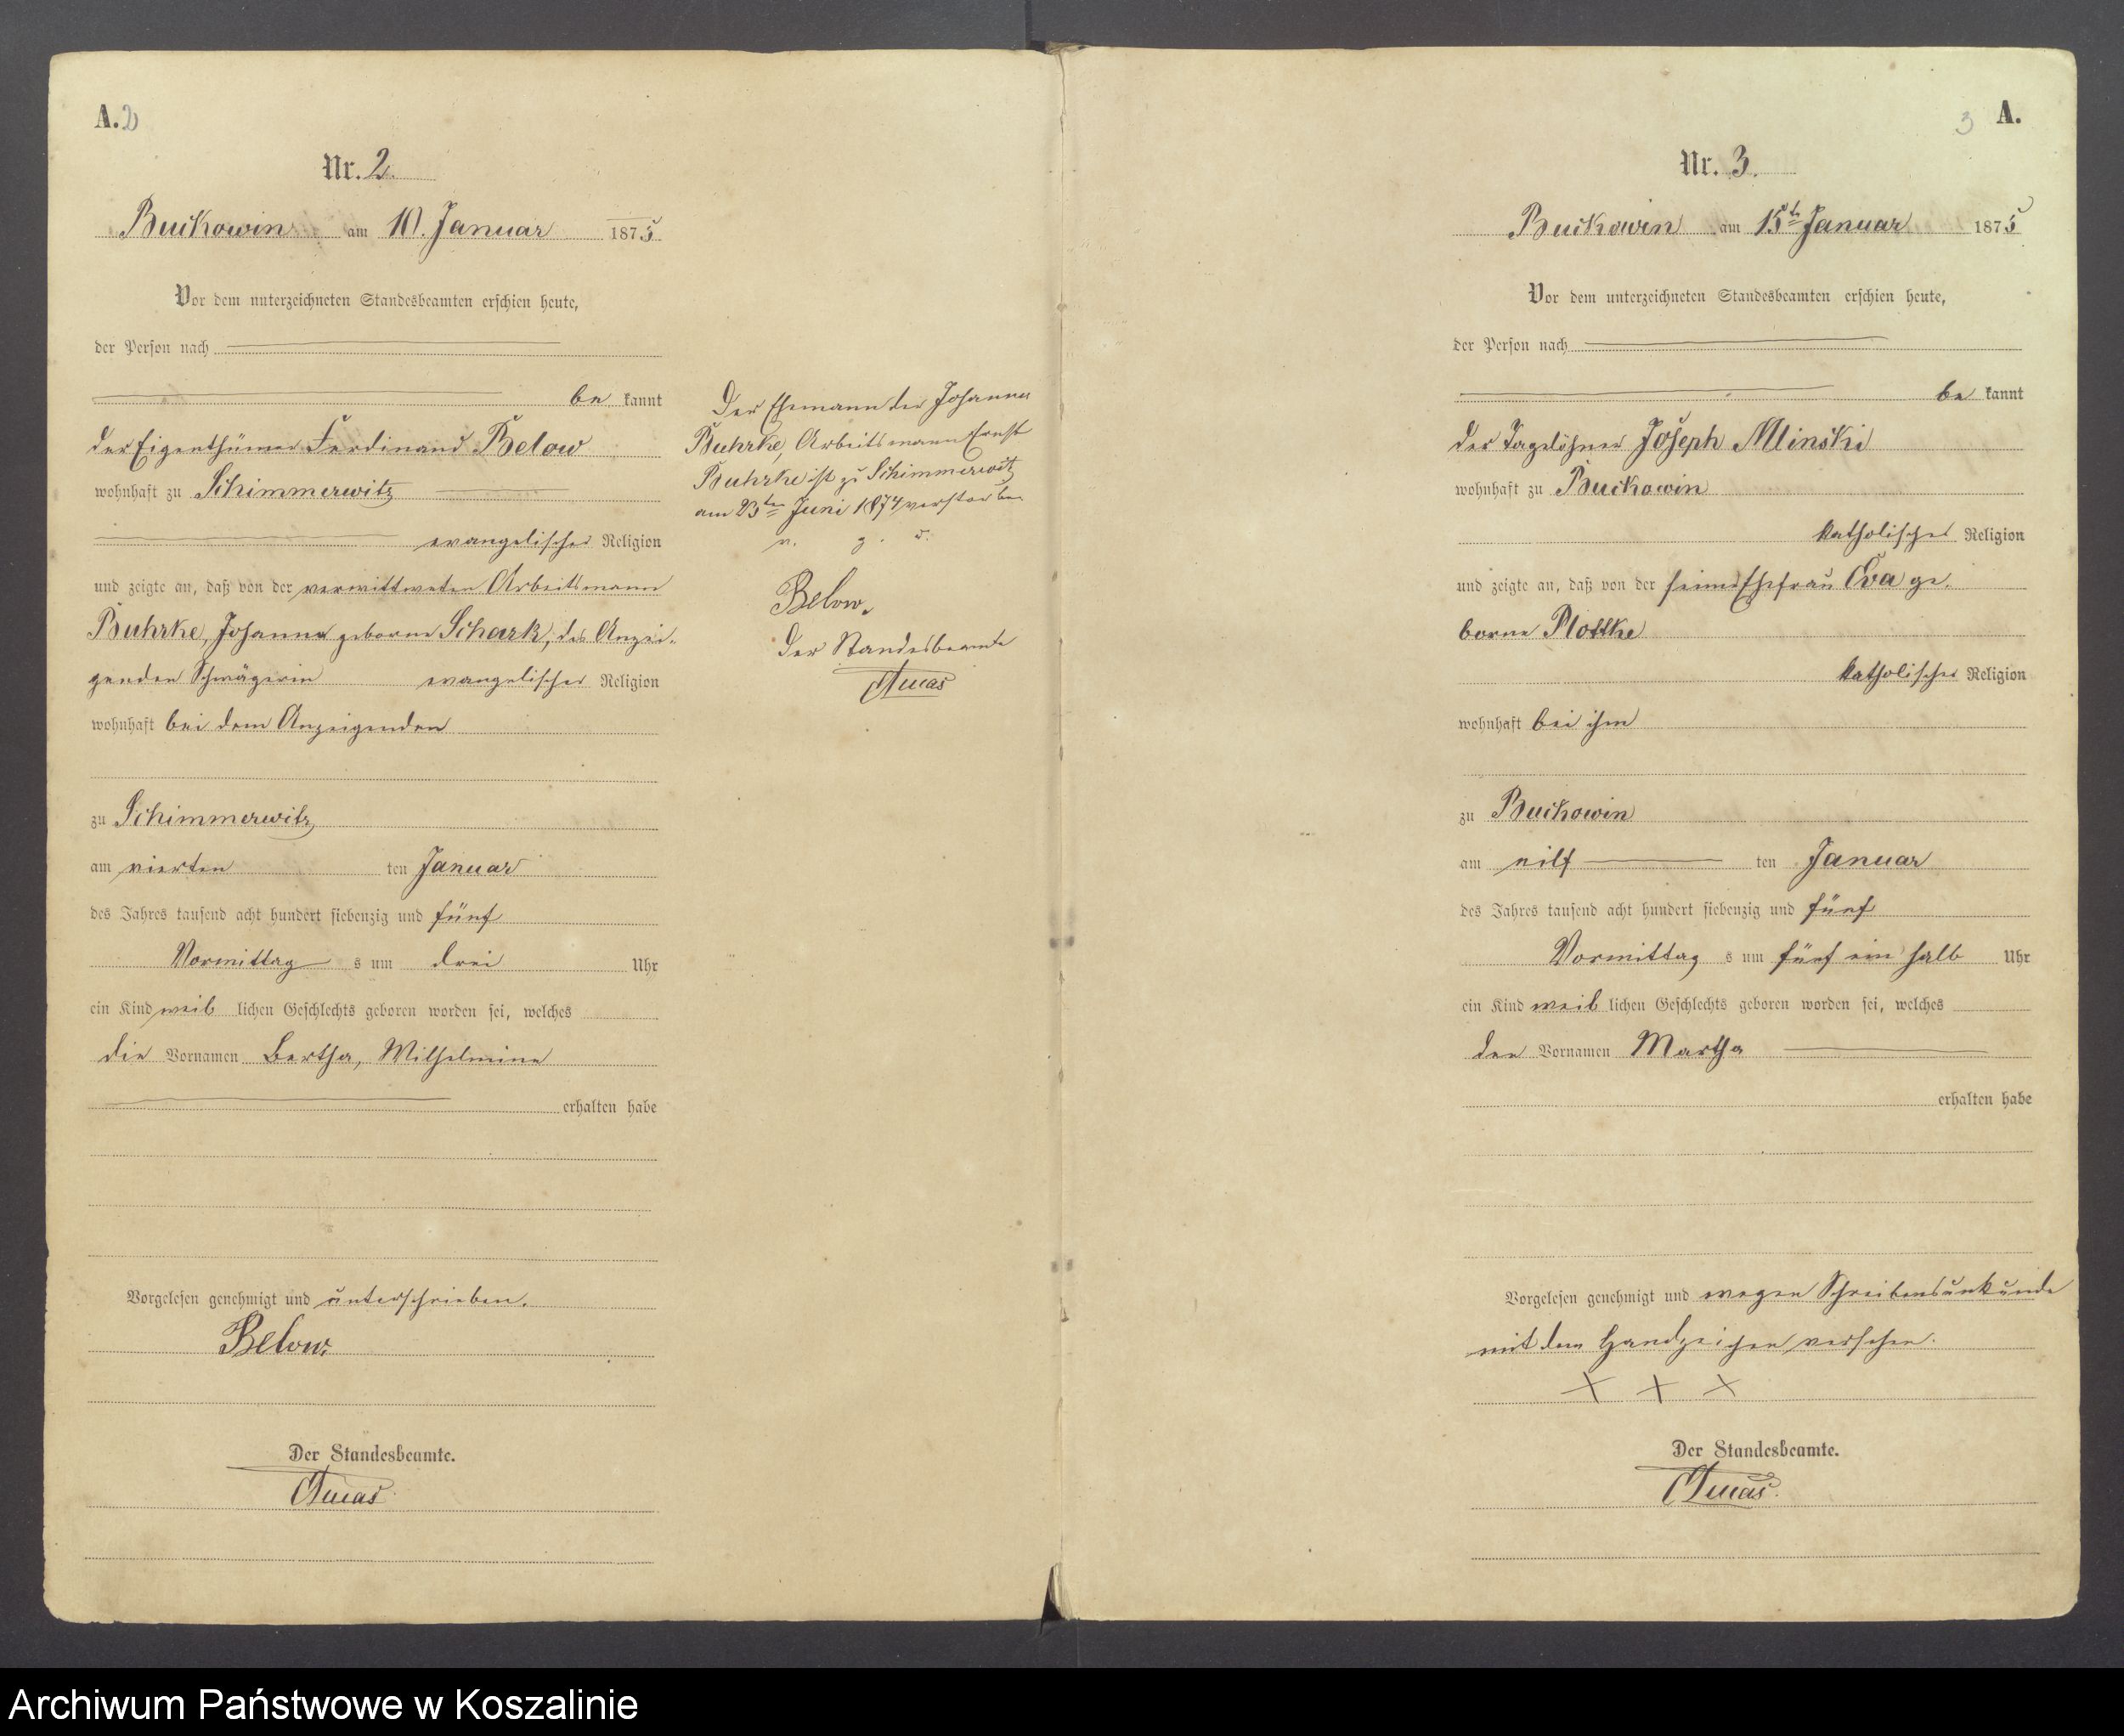 A. 2
Nr. 2.
Buckowin am 10. Januar 1875
Vor dem unterzeichneten Standesbeamten erschien heute,
der Person nach
be kannt
der Eigenthümer Ferdinand Below
wohnhaft zu Schimmerwitz
evangelischer Religion
und zeigte an, daß von der verwittweten Arbeitsmann
Buhrke, Johanna geborne Schark, des Anzei-
genden Schwägerin evangelischer Religion
wohnhaft bei dem Anzeigenden
zu Schimmerwitz
am vierten ten Januar
des Jahres tausend acht hundert siebenzig und fünf
Vormittag s um drei Uhr
ein Kind weib lichen Geschlechts geboren worden sei, welches
die Vornamen Bertha, Wilhelmine
erhalten habe
Vorgelesen genehmigt und unterschrieben.
Below.
Der Standesbeamte.
Der Ehemann der Johanna
Buhrke, Arbeitsmann Ernst
Buhrke ist zu Schimmerwitz
am 23ten Juni 1874 verstorben
v. g. u.
Below.
Der Standesbeamte
3 A.
Nr. 3.
Buckowin am 15ten Januar 1875
Vor dem unterzeichneten Standesbeamten erschien heute,
der Person nach
be kannt
der Tagelöhner Joseph Mlinski
wohnhaft zu Buckowin
katholischer Religion
und zeigte an, daß von der seiner Ehefrau Eva ge-
borne Plottke
katholischer Religion
wohnhaft bei ihm
zu Buckowin
am eilf ten Januar
des Jahres tausend acht hundert siebenzig und fünf
Vormittag s um fünf ein halb Uhr
ein Kind weib lichen Geschlechts geboren worden sei, welches
den Vornamen Martha
erhalten habe
Vorgelesen genehmigt und wegen Schreibensunkunde
mit dem Handzeichen versehen.
X X X
Der Standesbeamte.
Archiwum Państwowe w Koszalinie